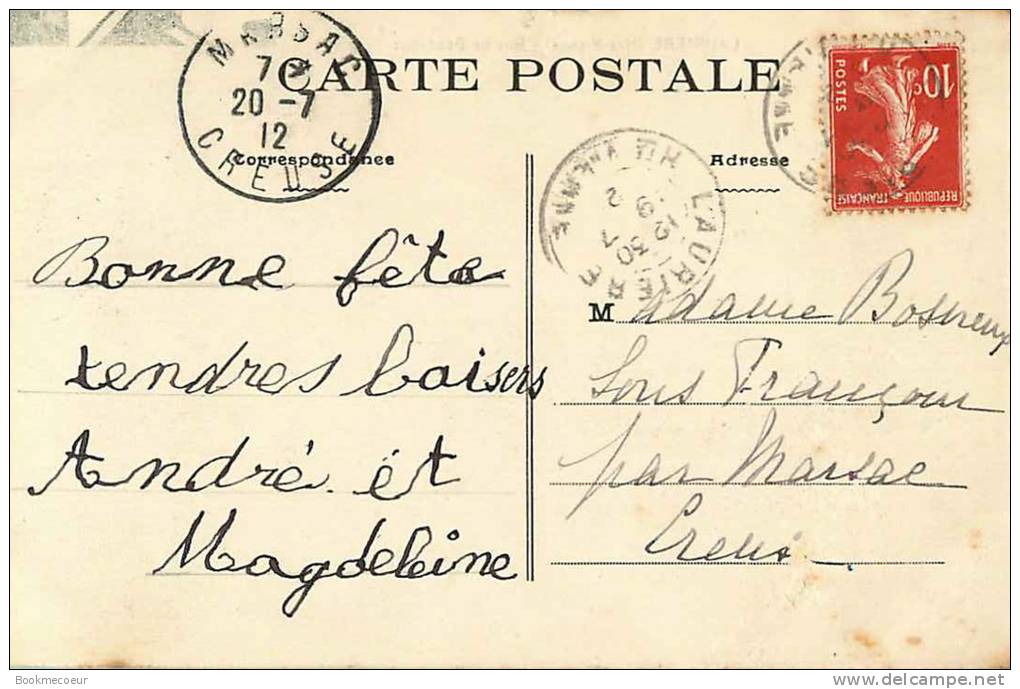 MARSAC
7
20 -7
12
CREUSE
CARTE POSTALE
Correspondance
Adresse
10c
POSTES
REPUBLIQUE FRANÇAISE
LAURIERE
HTE VIENNE
Bonne fête
tendres baisers
André et
Magdeleine
Madame
Sous
par Marsac
Creuse
Bookmecoeur
www.delcampe.net